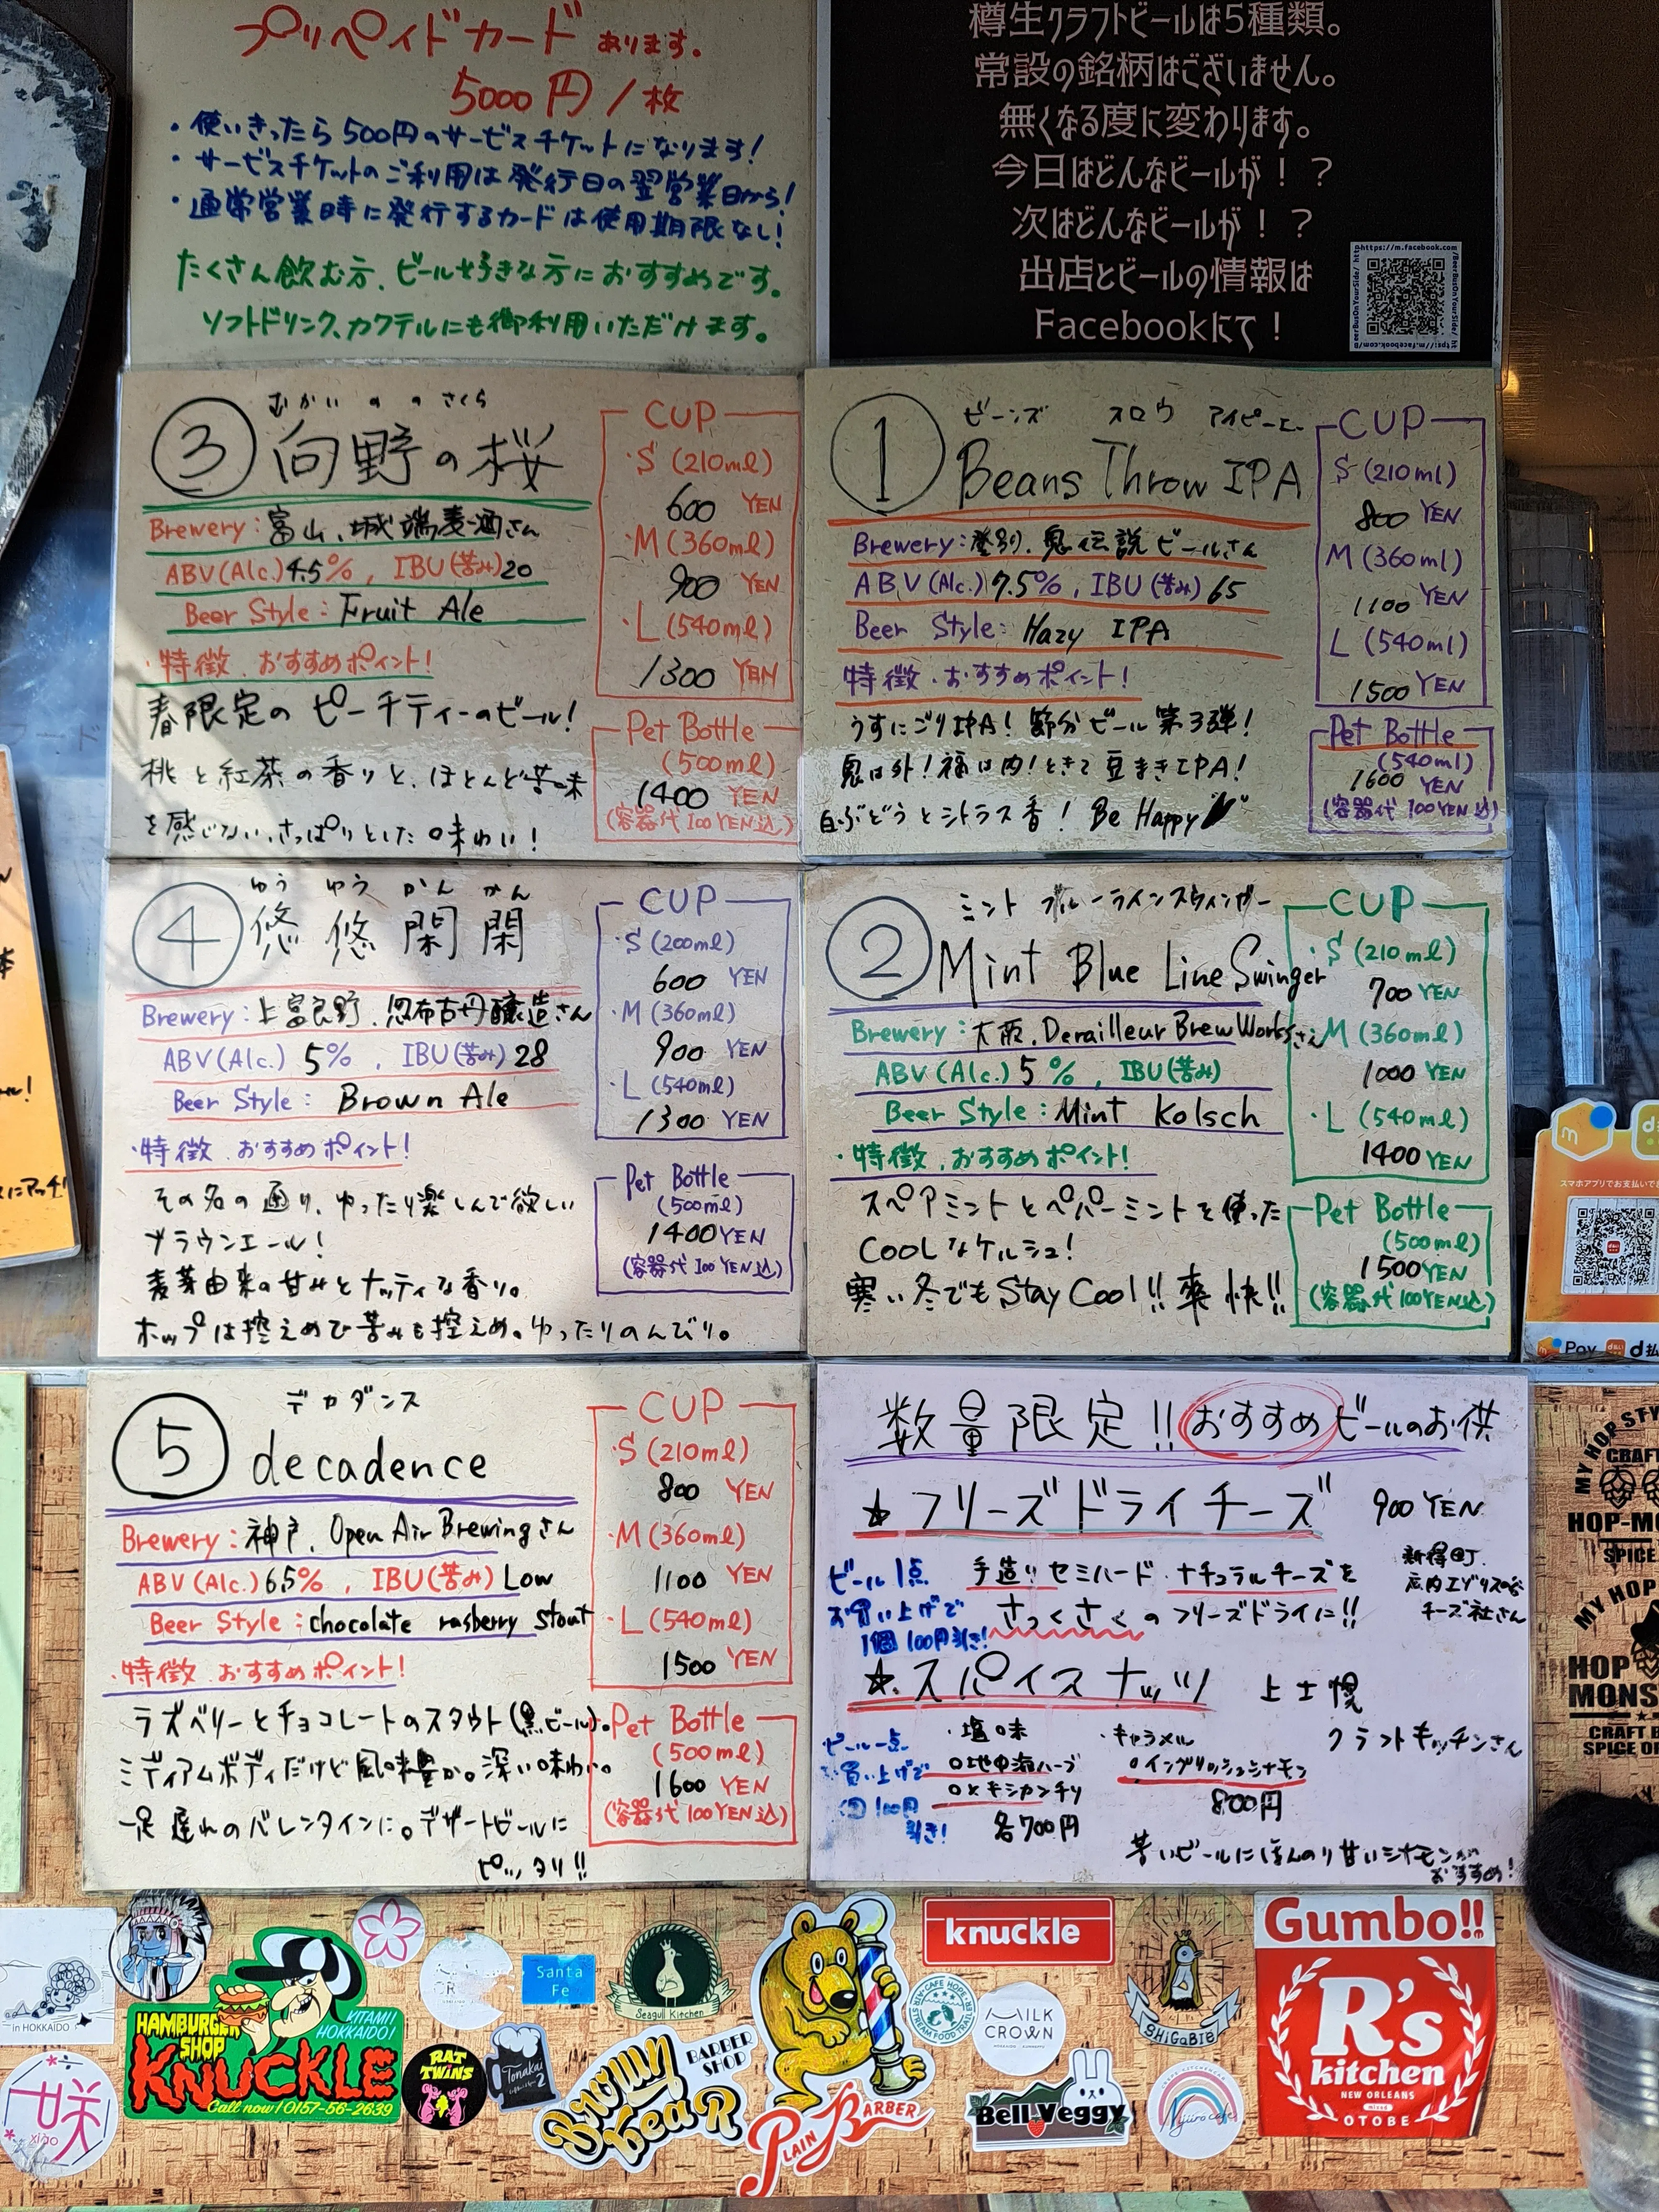 プリペイドカードあります。
5000円/枚
・使いきったら500円のサービスチケットになります!
・サービスチケットのご利用は発行日の翌営業日から!
・通常営業時に発行するカードは使用期限なし!
たくさん飲む方、ビール好きな方におすすめです。
ソフトドリンク、カクテルにも御利用いただけます。
樽生クラフトビールは5種類。
常設の銘柄はございません。
無くなる度に変わります。
今日はどんなビールが!?
次はどんなビールが!?
出店とビールの情報は
Facebookにて!
ビーンズ スロウ アイピーエー
① Beans Throw IPA
Brewery:登別、鬼伝説ビールさん
ABV(Alc.)7.5%, IBU(苦み)65
Beer Style: Hazy IPA
特徴、おすすめポイント!
うすにごりIPA!節分ビール第3弾!
鬼は外!福は内!ときて豆まきIPA!
白ぶどうとシトラス香! Be Happy
CUP
S (210ml)
800 YEN
M (360ml)
1100 YEN
L (540ml)
1500 YEN
Pet Bottle
(540ml)
1600 YEN
(容器代100YEN込)
ミント ブルーラインスウィンガー
② Mint Blue Line Swinger
Brewery:大阪、Derailleur Brew Worksさん
ABV(Alc.)5%, IBU(苦み)
Beer Style:Mint Kolsch
・特徴、おすすめポイント!
スペアミントとペパーミントを使った
COOLなケルシュ!
寒い冬でもStay Cool!!爽快!!
CUP
・S (210ml)
700 YEN
M (360ml)
1000 YEN
・L (540ml)
1400 YEN
Pet Bottle
(500ml)
1500 YEN
(容器代100YEN込)
むかい の の さくら
③ 向野の桜
Brewery:富山、城端麦酒さん
ABV(Alc.)4.5%, IBU(苦み)20
Beer Style:Fruit Ale
・特徴、おすすめポイント!
春限定のピーチティーのビール!
桃と紅茶の香りと、ほとんど苦味
を感じない、さっぱりとした味わい!
CUP
・S (210ml)
600 YEN
・M (360ml)
900 YEN
・L (540ml)
1300 YEN
Pet Bottle
(500ml)
1400 YEN
(容器代100YEN込)
ゆう ゆう かん かん
④ 悠悠閑閑
Brewery:上富良野、忽布古丹醸造さん
ABV(Alc.) 5%, IBU(苦み)28
Beer Style: Brown Ale
・特徴、おすすめポイント!
その名の通り、ゆったり楽しんで欲しい
ブラウンエール!
麦芽由来の甘みとナッティな香り。
ホップは控えめで苦みも控えめ。ゆったりのんびり。
CUP
・S (200ml)
600 YEN
・M (360ml)
900 YEN
・L (540ml)
1300 YEN
Pet Bottle
(500ml)
1400 YEN
(容器代100YEN込)
デカダンス
⑤ decadence
Brewery:神戸、Open Air Brewingさん
ABV(Alc.)6.5%, IBU(苦み)Low
Beer Style:chocolate rasberry stout
・特徴、おすすめポイント!
ラズベリーとチョコレートのスタウト(黒ビール)。
ミディアムボディだけど風味豊か。深い味わい。
一足遅れのバレンタインに。デザートビールに
ピッタリ!!
CUP
・S (210ml)
800 YEN
・M (360ml)
1100 YEN
・L (540ml)
1500 YEN
Pet Bottle
(500ml)
1600 YEN
(容器代100YEN込)
数量限定!!おすすめビールのお供
★フリーズドライチーズ 900 YEN
ビール1点
お買い上げで
1個100円引き!
手造りセミハードナチュラルチーズを
さっくさくのフリーズドライに!!
新得町、
広内エゾリスの谷
チーズ社さん
★スパイスナッツ 上士幌
クラフトキッチンさん
ビール一点
お買い上げで
1個100円
引き!
・塩味
○地中海ハーブ
○メキシカンチリ
各700円
・キャラメル
○イングリッシュシナモン
800円
苦いビールにほんのり甘いシナモンが
おすすめ!
スマホアプリでお支払いでき
Pay d払い d払
in HOKKAIDO
HAMBURGER
SHOP
KNUCKLE
KITAMI
HOKKAIDO!
Call now! 0157-56-2639
Santa
Fe
Seagull Kitchen
RAT
TWINS
Tonakai
2
BARBER
SHOP
Brown
bear
PLAIN BARBER
knuckle
MILK
CROWN
SHiGaBiB
Bell Veggy
Nijiiro cafe
Gumbo!!
R's
kitchen
NEW ORLEANS
mixed
OTOBE
咲
xiao
MY HOP STY
CRAFT
HOP-MO
SPICE
MY HOP
HOP
MONS
CRAFT B
SPICE OR